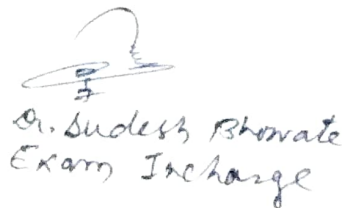 Dr. Sudesh Bhowate
Exam Incharge